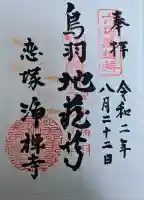 奉拝
令和二年
八月二十二日
鳥羽地蔵尊
恋塚浄禅寺